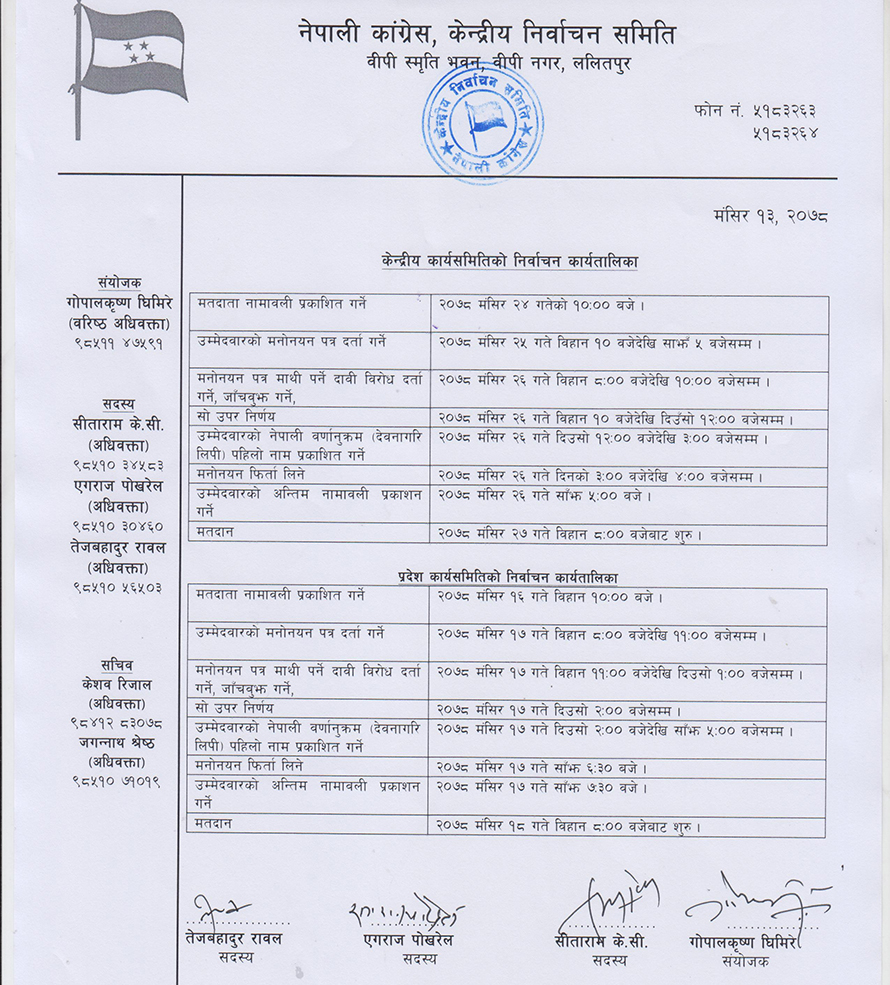 नेपाली कांग्रेस, केन्द्रीय निर्वाचन समिति
वीपी स्मृति भवन, वीपी नगर, ललितपुर
केन्द्रीय निर्वाचन समिति
नेपाली कांग्रेस
फोन नं. ५१८३२६३
५१८३२६४
मंसिर १३, २०७८
संयोजक
गोपालकृष्ण घिमिरे
(वरिष्ठ अधिवक्ता)
९८५११ ४७५९१
सदस्य
सीताराम के.सी.
(अधिवक्ता)
९८५१० ३४५८३
एगराज पोखरेल
(अधिवक्ता)
९८५१० ३०४६०
तेजबहादुर रावल
(अधिवक्ता)
९८५१० ५६५०३
सचिव
केशव रिजाल
(अधिवक्ता)
९८४१२ ८३०७८
जगन्नाथ श्रेष्ठ
(अधिवक्ता)
९८५१० ७१०१९
केन्द्रीय कार्यसमितिको निर्वाचन कार्यतालिका
मतदाता नामावली प्रकाशित गर्ने २०७८ मंसिर २४ गतेको १०:०० बजे ।
उम्मेदवारको मनोनयन पत्र दर्ता गर्ने २०७८ मंसिर २५ गते विहान १० वजेदेखि साझँ ५ वजेसम्म ।
मनोनयन पत्र माथी पर्ने दावी विरोध दर्ता २०७८ मंसिर २६ गते विहान ८:०० वजेदेखि १०:०० वजेसम्म ।
गर्ने, जाँचवुझ गर्ने,
सो उपर निर्णय २०७८ मंसिर २६ गते विहान १० वजेदेखि दिउँसो १२:०० वजेसम्म ।
उम्मेदवारको नेपाली वर्णानुक्रम (देवनागरि २०७८ मंसिर २६ गते दिउसो १२:०० वजेदेखि ३:०० वजेसम्म ।
लिपी) पहिलो नाम प्रकाशित गर्ने
मनोनयन फिर्ता लिने २०७८ मंसिर २६ गते दिनको ३:०० वजेदेखि ४:०० वजेसम्म ।
उम्मेदवारको अन्तिम नामावली प्रकाशन २०७८ मंसिर २६ गते साँझ ५:०० वजे ।
गर्ने
मतदान २०७८ मंसिर २७ गते विहान ८:०० वजेबाट शुरु ।
प्रदेश कार्यसमितिको निर्वाचन कार्यतालिका
मतदाता नामावली प्रकाशित गर्ने २०७८ मंसिर १६ गते विहान १०:०० बजे ।
उम्मेदवारको मनोनयन पत्र दर्ता गर्ने २०७८ मंसिर १७ गते विहान ८:०० वजेदेखि ११:०० वजेसम्म ।
मनोनयन पत्र माथी पर्ने दावी विरोध दर्ता २०७८ मंसिर १७ गते विहान ११:०० वजेदेखि दिउसो १:०० वजेसम्म ।
गर्ने, जाँचवुझ गर्ने,
सो उपर निर्णय २०७८ मंसिर १७ गते दिउसो २:०० वजेसम्म ।
उम्मेदवारको नेपाली वर्णानुक्रम (देवनागरि २०७८ मंसिर १७ गते दिउसो २:०० वजेदेखि साझ ५:०० वजेसम्म ।
लिपी) पहिलो नाम प्रकाशित गर्ने
मनोनयन फिर्ता लिने २०७८ मंसिर १७ गते साँझ ६:३० वजे ।
उम्मेदवारको अन्तिम नामावली प्रकाशन २०७८ मंसिर १७ गते साँझ ७:३० वजे ।
गर्ने
मतदान २०७८ मंसिर १८ गते विहान ८:०० वजेबाट शुरु ।
तेजबहादुर रावल एगराज पोखरेल सीताराम के.सी. गोपालकृष्ण घिमिरे
सदस्य सदस्य सदस्य संयोजक